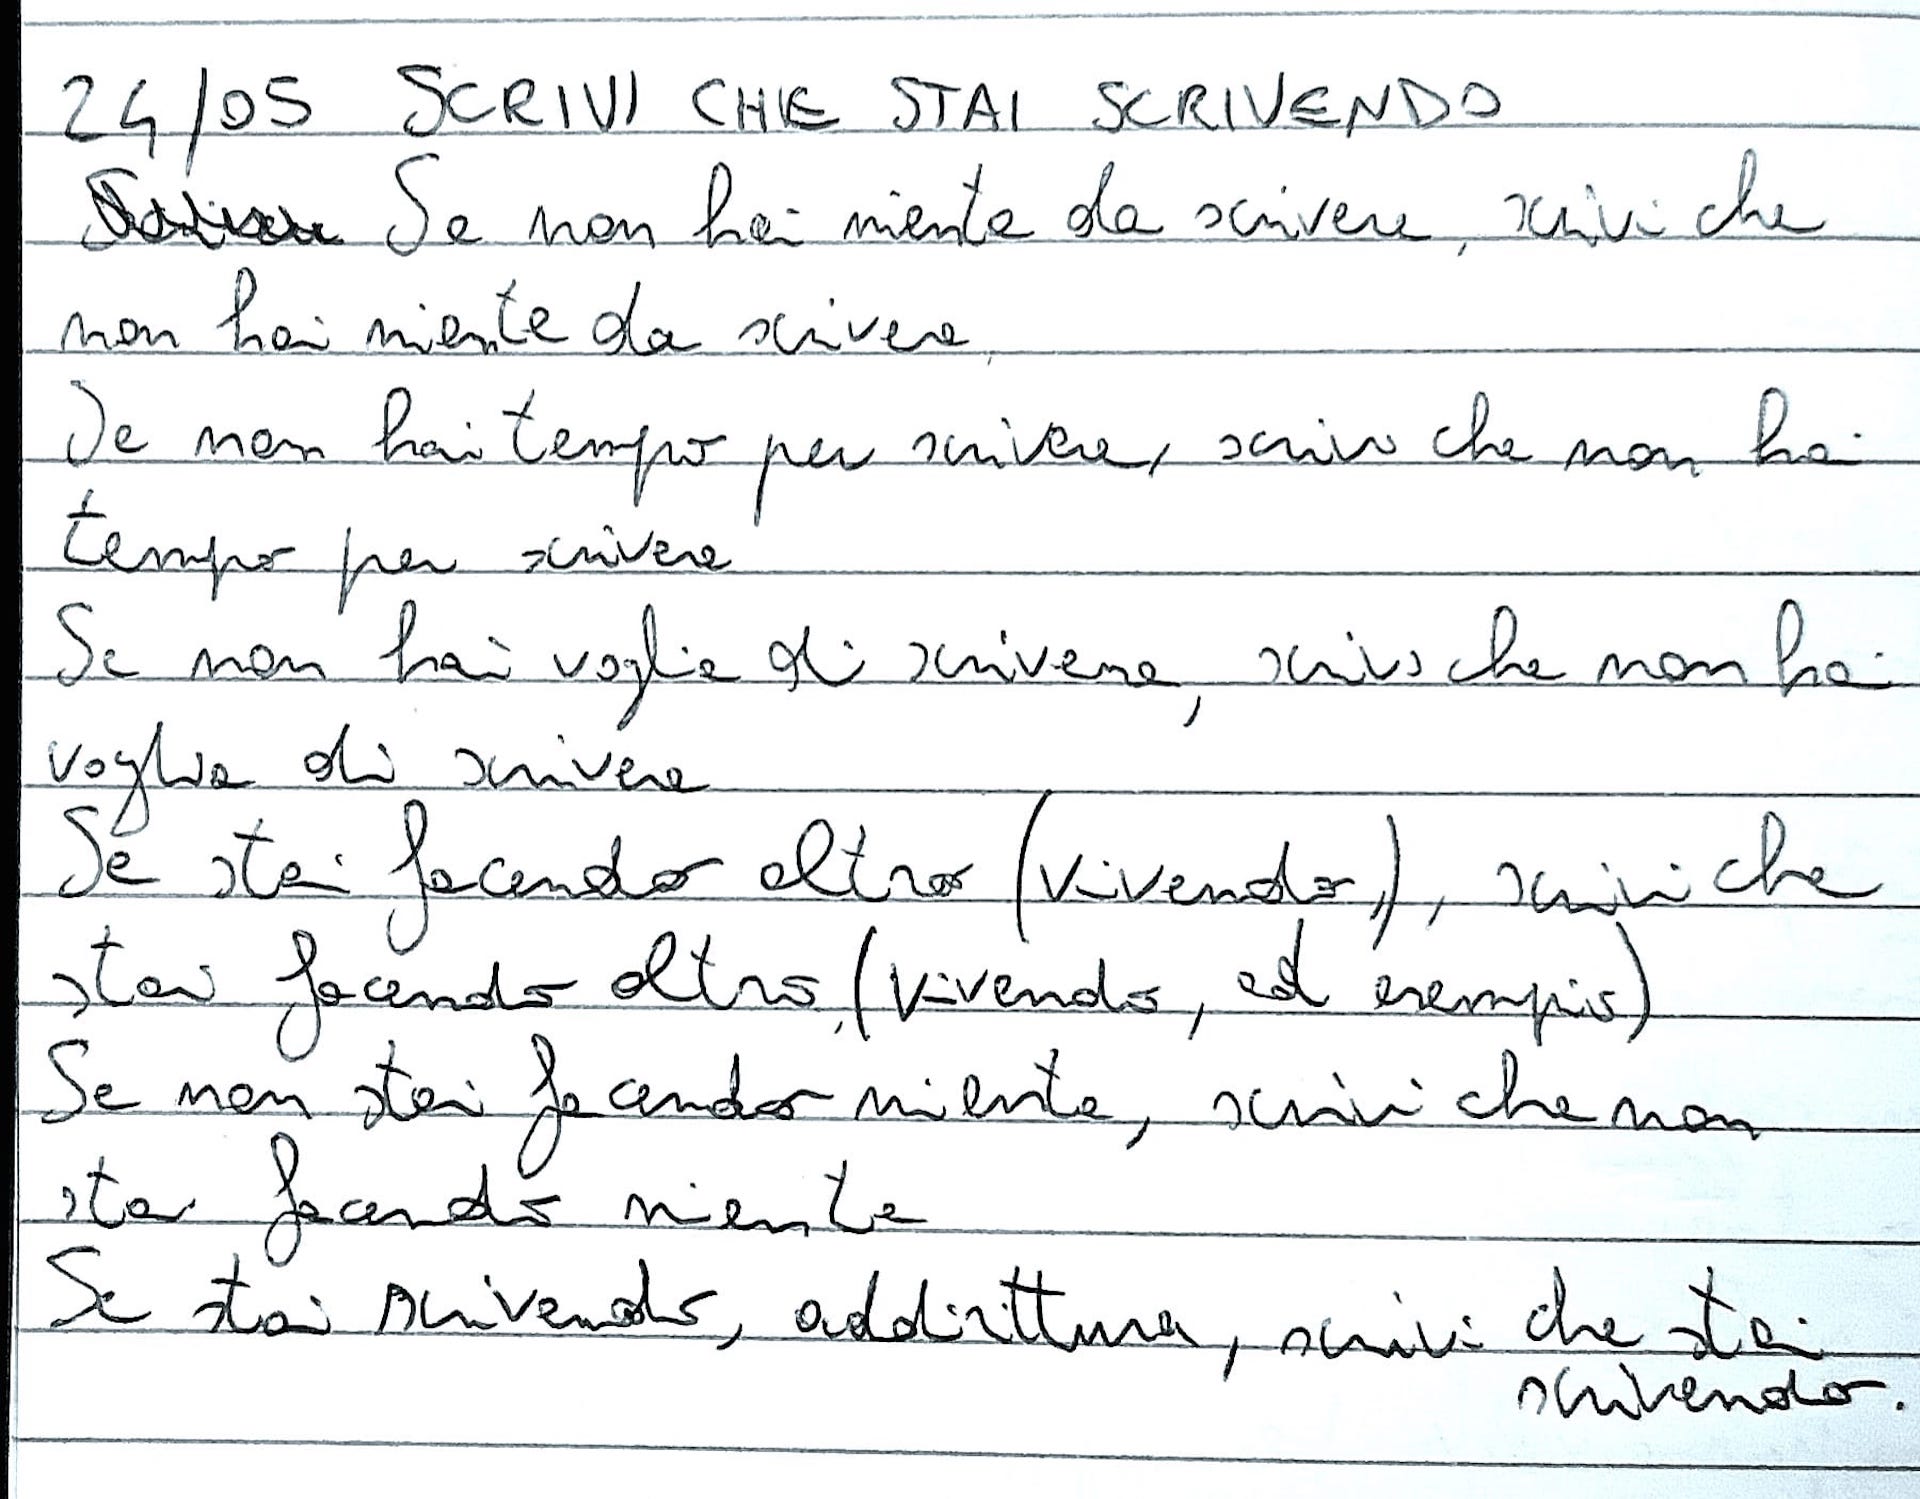 24/05 SCRIVI CHE STAI SCRIVENDO
Se non hai niente da scrivere, scrivi che
non hai niente da scrivere
Se non hai tempo per scrivere, scrivi che non hai
tempo per scrivere
Se non hai voglia di scrivere, scrivi che non hai
voglia di scrivere
Se stai facendo altro (vivendo,), scrivi che
stai facendo altro (vivendo, ad esempio)
Se non stai facendo niente, scrivi che non
stai facendo niente
Se stai scrivendo, addirittura, scrivi che stai
scrivendo.